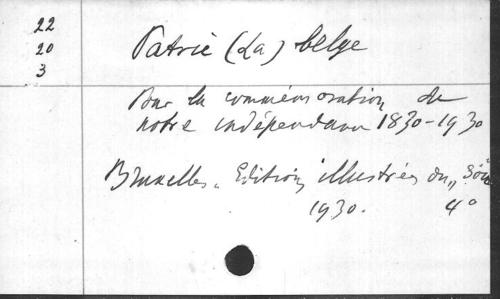 22
20
3
Patrie (La) belge
Pour la commémoration de
notre indépendance 1830-1930
Bruxelles. Editions illustrées du „Soir"
1930. 4°